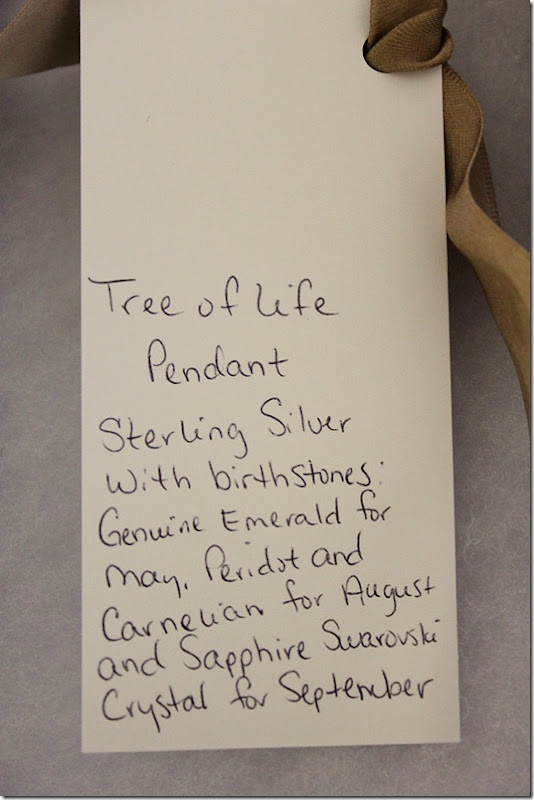 Tree of life
Pendant
Sterling Silver
with birthstones:
Genuine Emerald for
may, Peridot and
Carnelian for August
and Sapphire Swarovski
Crystal for September